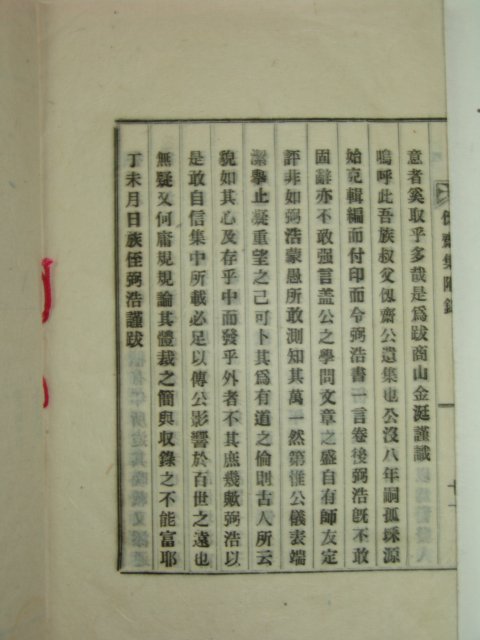 意者奚取乎多哉是爲跋商山金涎謹識
嗚呼此吾族叔父傀齋公遺集也公沒八年嗣孤琢源
始克輯編而付印而令弼浩書一言卷後弼浩旣不敢
固辭亦不敢强言盖公之學問文章之盛自有師友定
評非如弼浩蒙愚所敢測知其萬一然第惟公儀表端
潔擧止凝重望之己可卜其爲有道之倫則古人所云
貌如其心及存乎中而發乎外者不其庶幾歟弼浩以
是敢自信集中所載必足以傳公影響於百世之遠也
無疑又何庸規規論其體裁之簡與收錄之不能富耶
丁未月日族侄弼浩謹跋
齋集附錄
十一